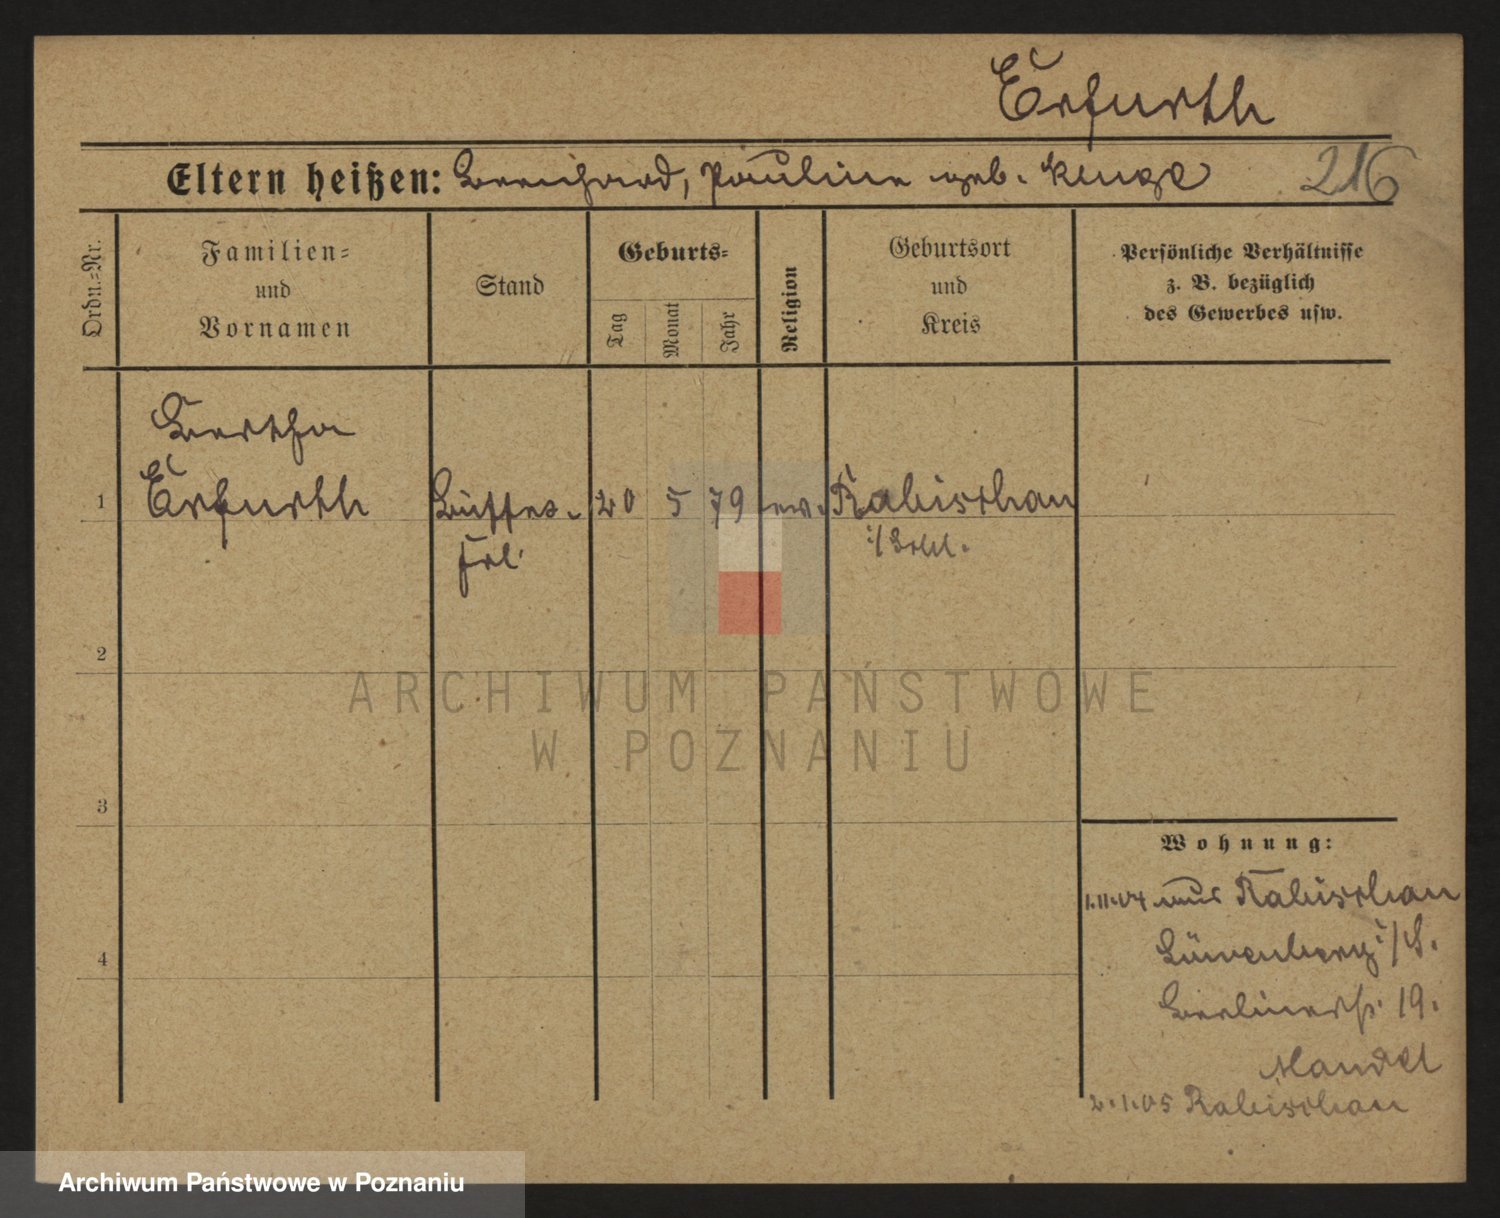 Erfurth
Eltern heißen: Bernhard, Pauline geb. Kunze
216
Ordn.=Nr.
Familien=
und
Vornamen
Stand
Geburts=
Tag
Monat
Jahr
Religion
Geburtsort
und
Kreis
Persönliche Verhältnisse
z. B. bezüglich
des Gewerbes usw.
Bertha
1 Erfurth Büffet- 20 5 79 ev. Rabischau
frl. i/Schl.
2
ARCHIWUM PAŃSTWOWE
W POZNANIU
3
Wohnung:
1.11.04 aus Rabischau
Löwenberg i/S.
4
Berlinerstr. 19.
Mandel
2.1.05 Rabischau
Archiwum Państwowe w Poznaniu